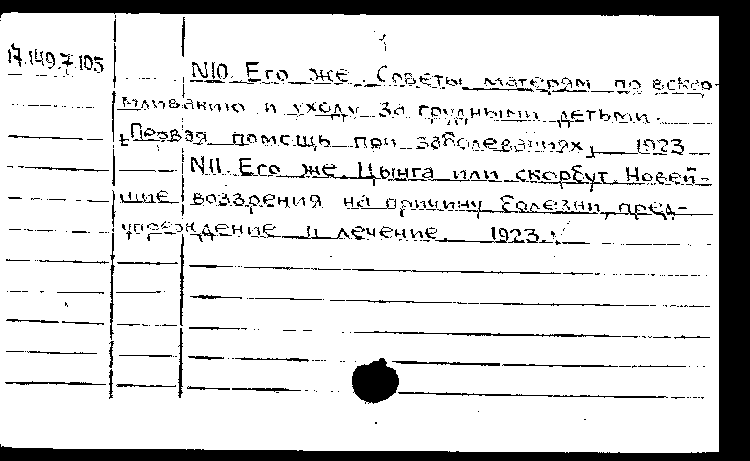 17.149.7.105
N10. Его же. Советы матерям по вскар-
мливанию и уходу за грудными детьми.
[Первая помощь при заболеваниях] 1923
N11. Его же. Цынга или скорбут. Новей-
шие воззрения на причину болезни, пред-
упреждение и лечение. 1923.